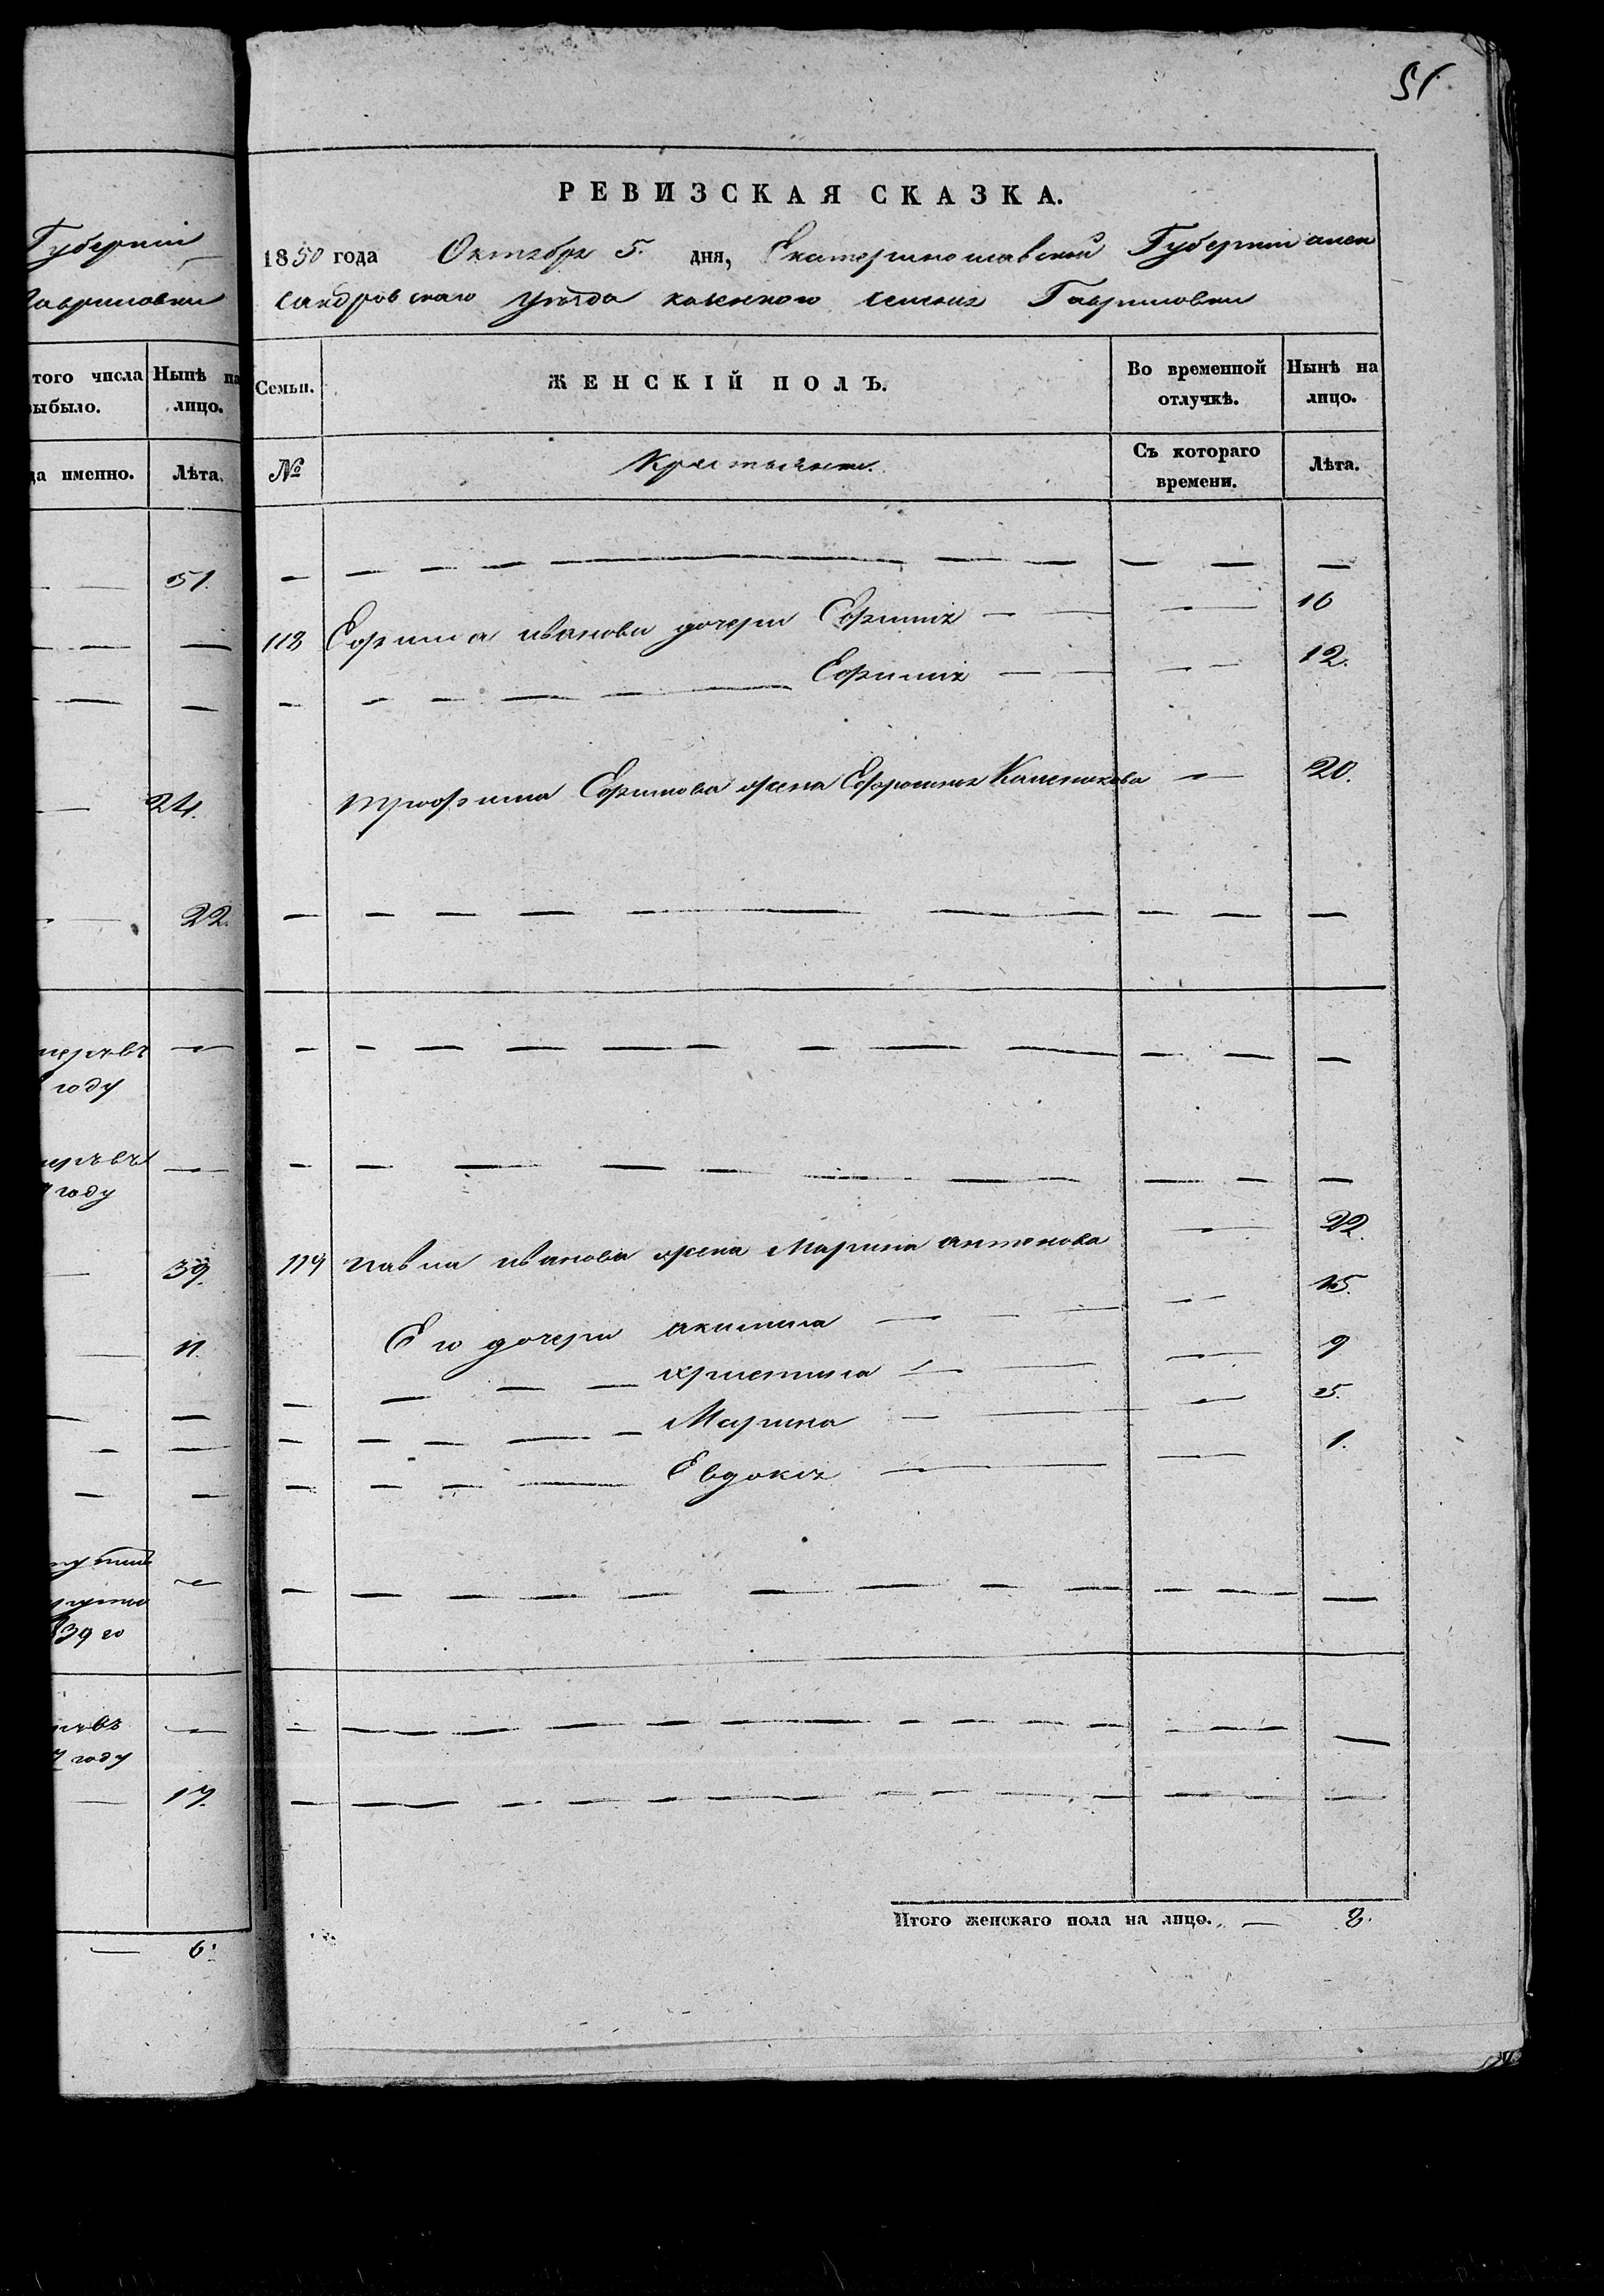 51
Губерніи
Гавриловки
того числа Нынѣ на
выбыло. лицо.
да именно. Лѣта.
51.
24.
22.
году
году
39.
11.
839 го
году
17.
6.
РЕВИЗСКАЯ СКАЗКА.
1850 года Октября 5. дня, Екатеринославской Губерніи алек
сандровскаго уѣзда казенного селенія Гавриловки
Семьи. ЖЕНСКІЙ ПОЛЪ. Во временной отлучкѣ. Нынѣ на лицо.
№ Крестьяне. Съ котораго времени. Лѣта.
118 Ефима иванова дочери Ефимія — — — 16
— — — — — Ефимія — — — 12.
трофима Ефимова жена Ефросинья Каленикова — 20.
119 павла иванова жена Марина антонова — 22.
Его дочери акилина — — — 15.
— — — христина — — — 9
— — — — Марина — — — 5.
— — — — Евдокія — — — 1.
Итого женскаго пола на лицо. — 8.